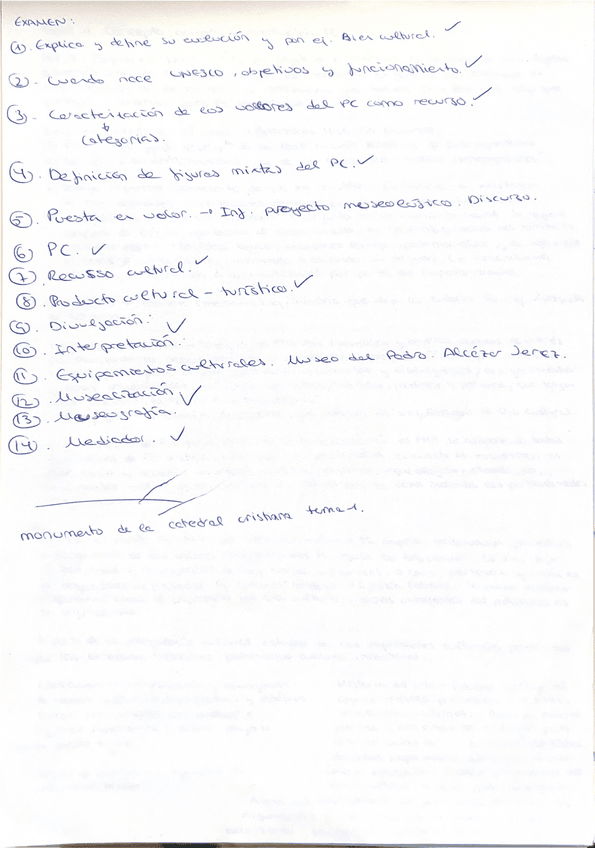 EXAMEN:
①. Explica y define su evolución y pon ej. Bien cultural. ✓
②. Cuando nace UNESCO, objetivos y funcionamiento. ✓
③. Caracterización de los valores del PC como recurso. ✓
↓
Categorías.
④. Definición de figuras mixtas del PC. ✓
⑤. Puesta en valor. → Inf. proyecto museológico. Discurso.
⑥ PC. ✓
⑦. Recurso cultural. ✓
⑧. Producto cultural - turístico. ✓
⑨. Divulgación. ✓
⑩. Interpretación.
⑪. Equipamientos culturales. Museo del Prado. Alcázar Jerez.
⑫. Musealización ✓
⑬. Museografía.
⑭. Mediador. ✓
monumento de la catedral cristiana tema 1.